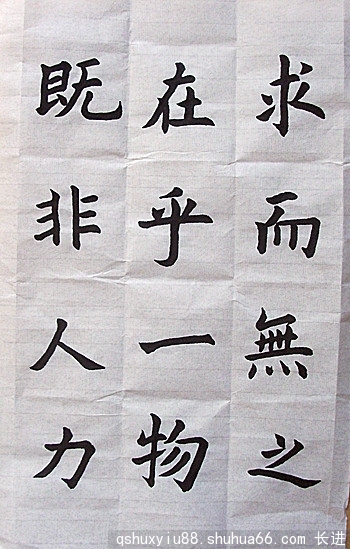 求而無之
在乎一物
既非人力
qshuxyiu88.shuhua66.com 长进